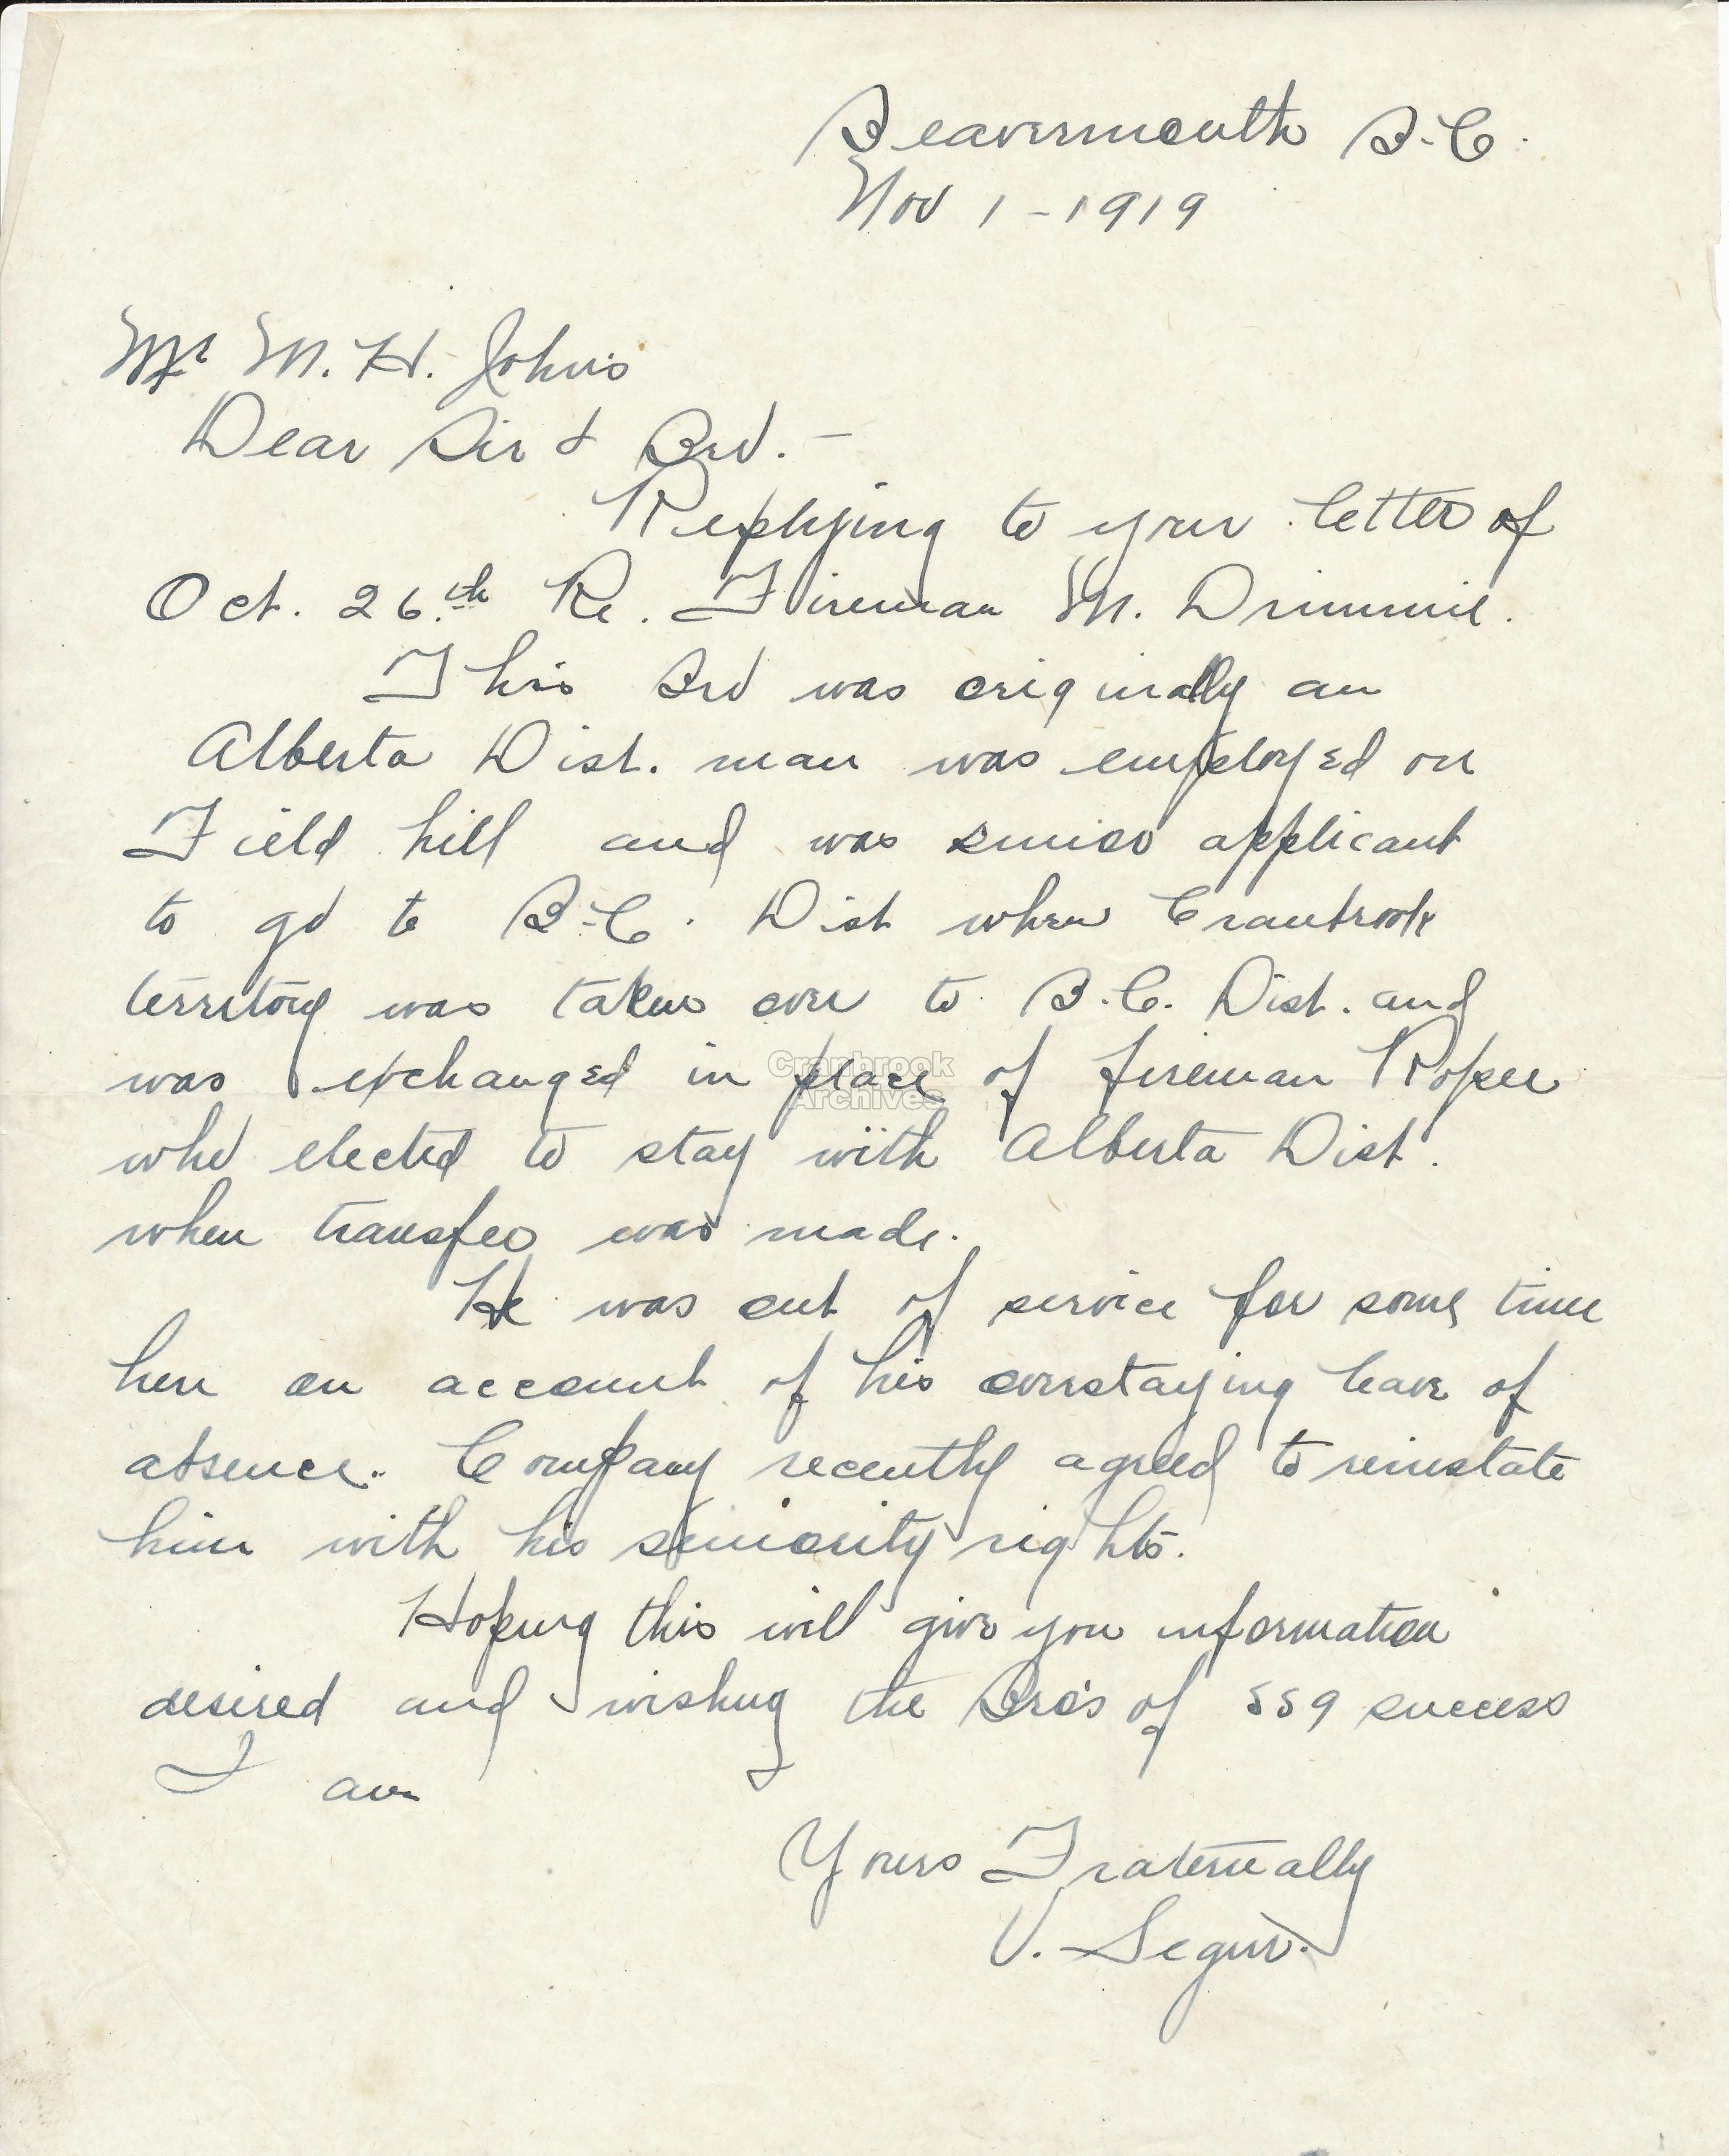 Beavermouth B.C.
Nov 1-1919
Mr M. H. Johns
Dear Sir & Bro. -
Replying to your letter of
Oct. 26th Re. Fireman M. Drimmie.
This Bro was originally an
Alberta Dist. man was employed on
Field hill and was senior applicant
to go to B.C. Dist when Cranbrook
territory was taken over to B.C. Dist. and
was exchanged in place of fireman Roper
who elected to stay with Alberta Dist.
when transfer was made.
He was out of service for some time
here on account of his overstaying leave of
absence. Company recently agreed to reinstate
him with his seniority rights.
Hoping this will give you information
desired and wishing the Bro's of 559 success
I am
Yours Fraternally
V. Segur.
Cranbrook
Archives